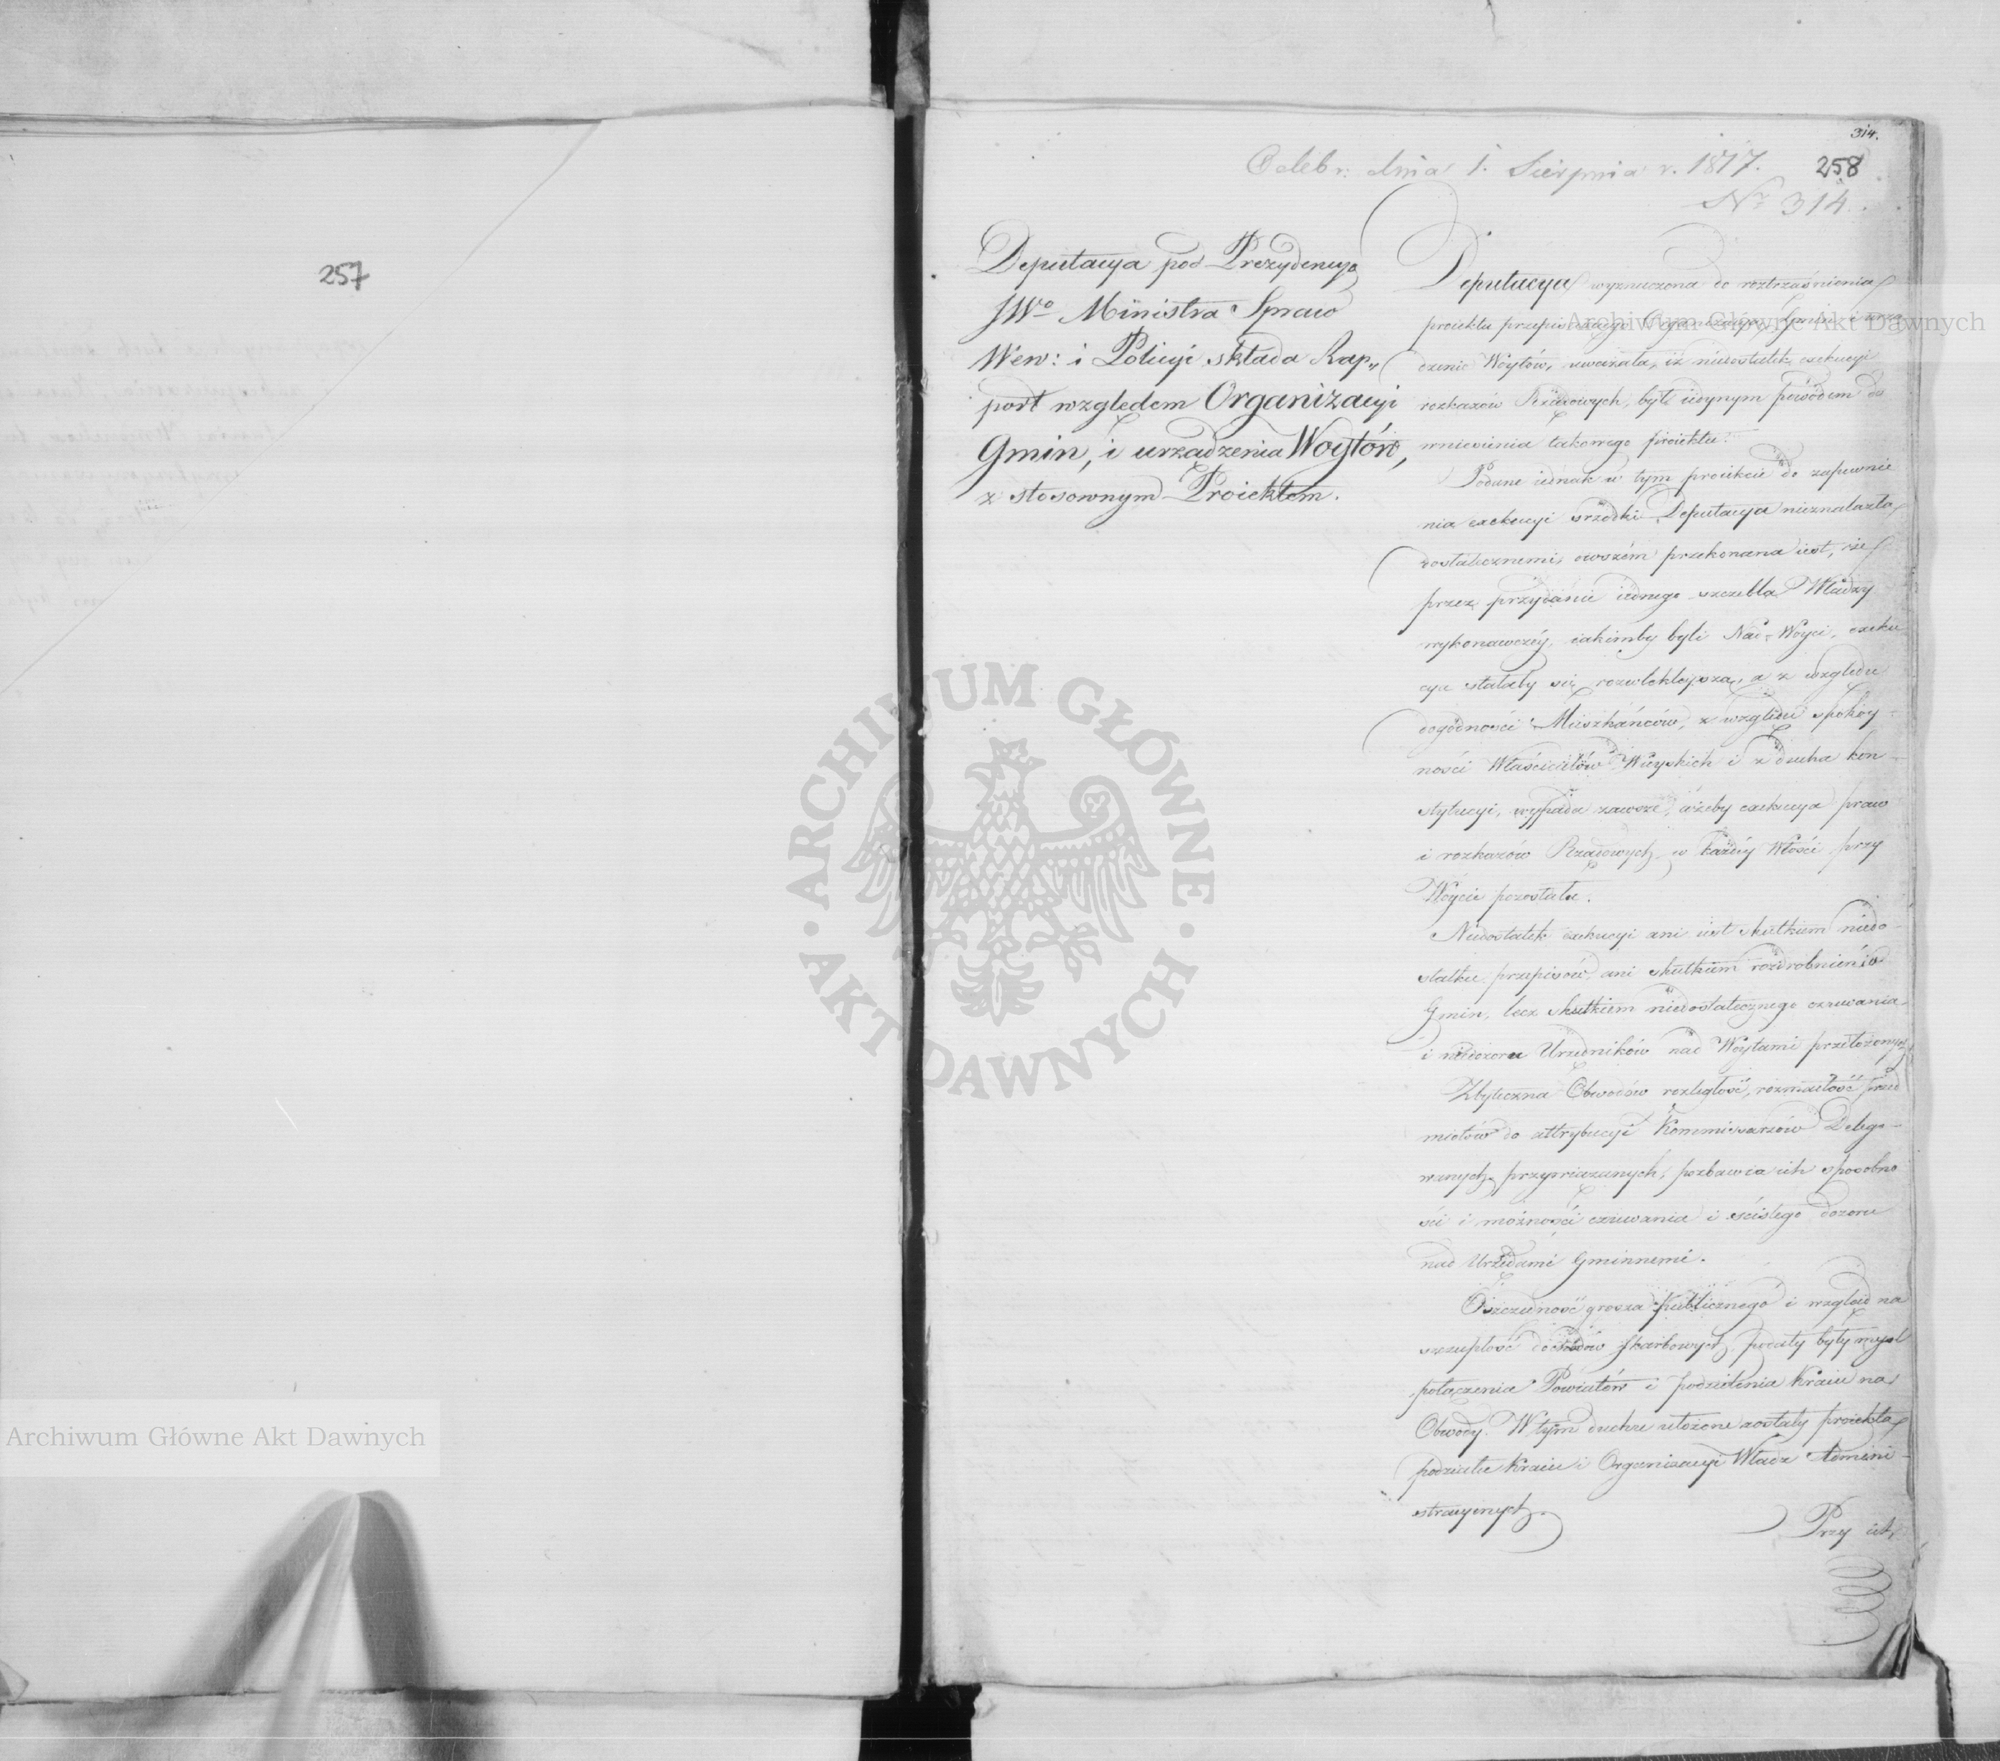 257
314.
258
Odebr: dnia 1. Sierpnia r. 1817.
Nr 314.
Deputacya pod Prezydencyą
JWo Ministra Spraw
Wew: i Policyi składa Rap„
port względem Organizacyi
Gmin, i urządzenia Woytów,
z stosownym Proiektem.
Deputacya wyznaczona do roztrząśnienia
proiektu przepisuiącego Organizacyą Gmin i urzą
dzenie Woytów, uważała, iż niedostatek exekucyi
rozkazów Rządowych, był iedynym powodem do
wniesienia takowego proiektu.
Podane iednak w tym proiekcie do zapewnie
nia exekucyi srzodki Deputacya nieznalazła
dostatecznemi, owszem przekonana iest, że
przez przydanie iednego szczebla Władzy
wykonawczéy, iakimby byli Nad-Woyci, exeku
cya stałaby się rozwleklejszą, a z względu
dogodności Mieszkańców, z względu spokoy-
ności Właścicielów Wieyskich i z ducha kon-
stytucyi, wypada zawsze, ażeby exekucya praw
i rozkazów Rządowych w każdéy Włości przy
Wóycie pozostała.
Niedostatek exekucyi ani iest skutkiem niedo-
statku przepisów, ani skutkiem rozdrobnienia
Gmin, lecz skutkiem niedostatecznego czuwania
i niedozoru Urzędników nad Woytami przełożonych
Zbyteczna Obwodów rozległość, rozmaitość przed
miotów do attrybucyi Kommissarzów Delego-
wanych przywiązanych, pozbawia ich sposobno
ści i możności czuwania i ścisłego dozoru
nad Urzędami Gminnemi.
Oszczędność grosza Publicznego i wzgląd na
szczupłość dochodów skarbowych podały były myśl
połączenia Powiatów i podzielenia Kraiu na
Obwody. W tym duchu ułożone zostały proiekta
podziału Kraiu i Organizacyi Władz Admini-
stracyinych.
Przy ich
Archiwum Główne Akt Dawnych
Archiwum Główne Akt Dawnych
ARCHIWUM GŁÓWNE · AKT DAWNYCH ·